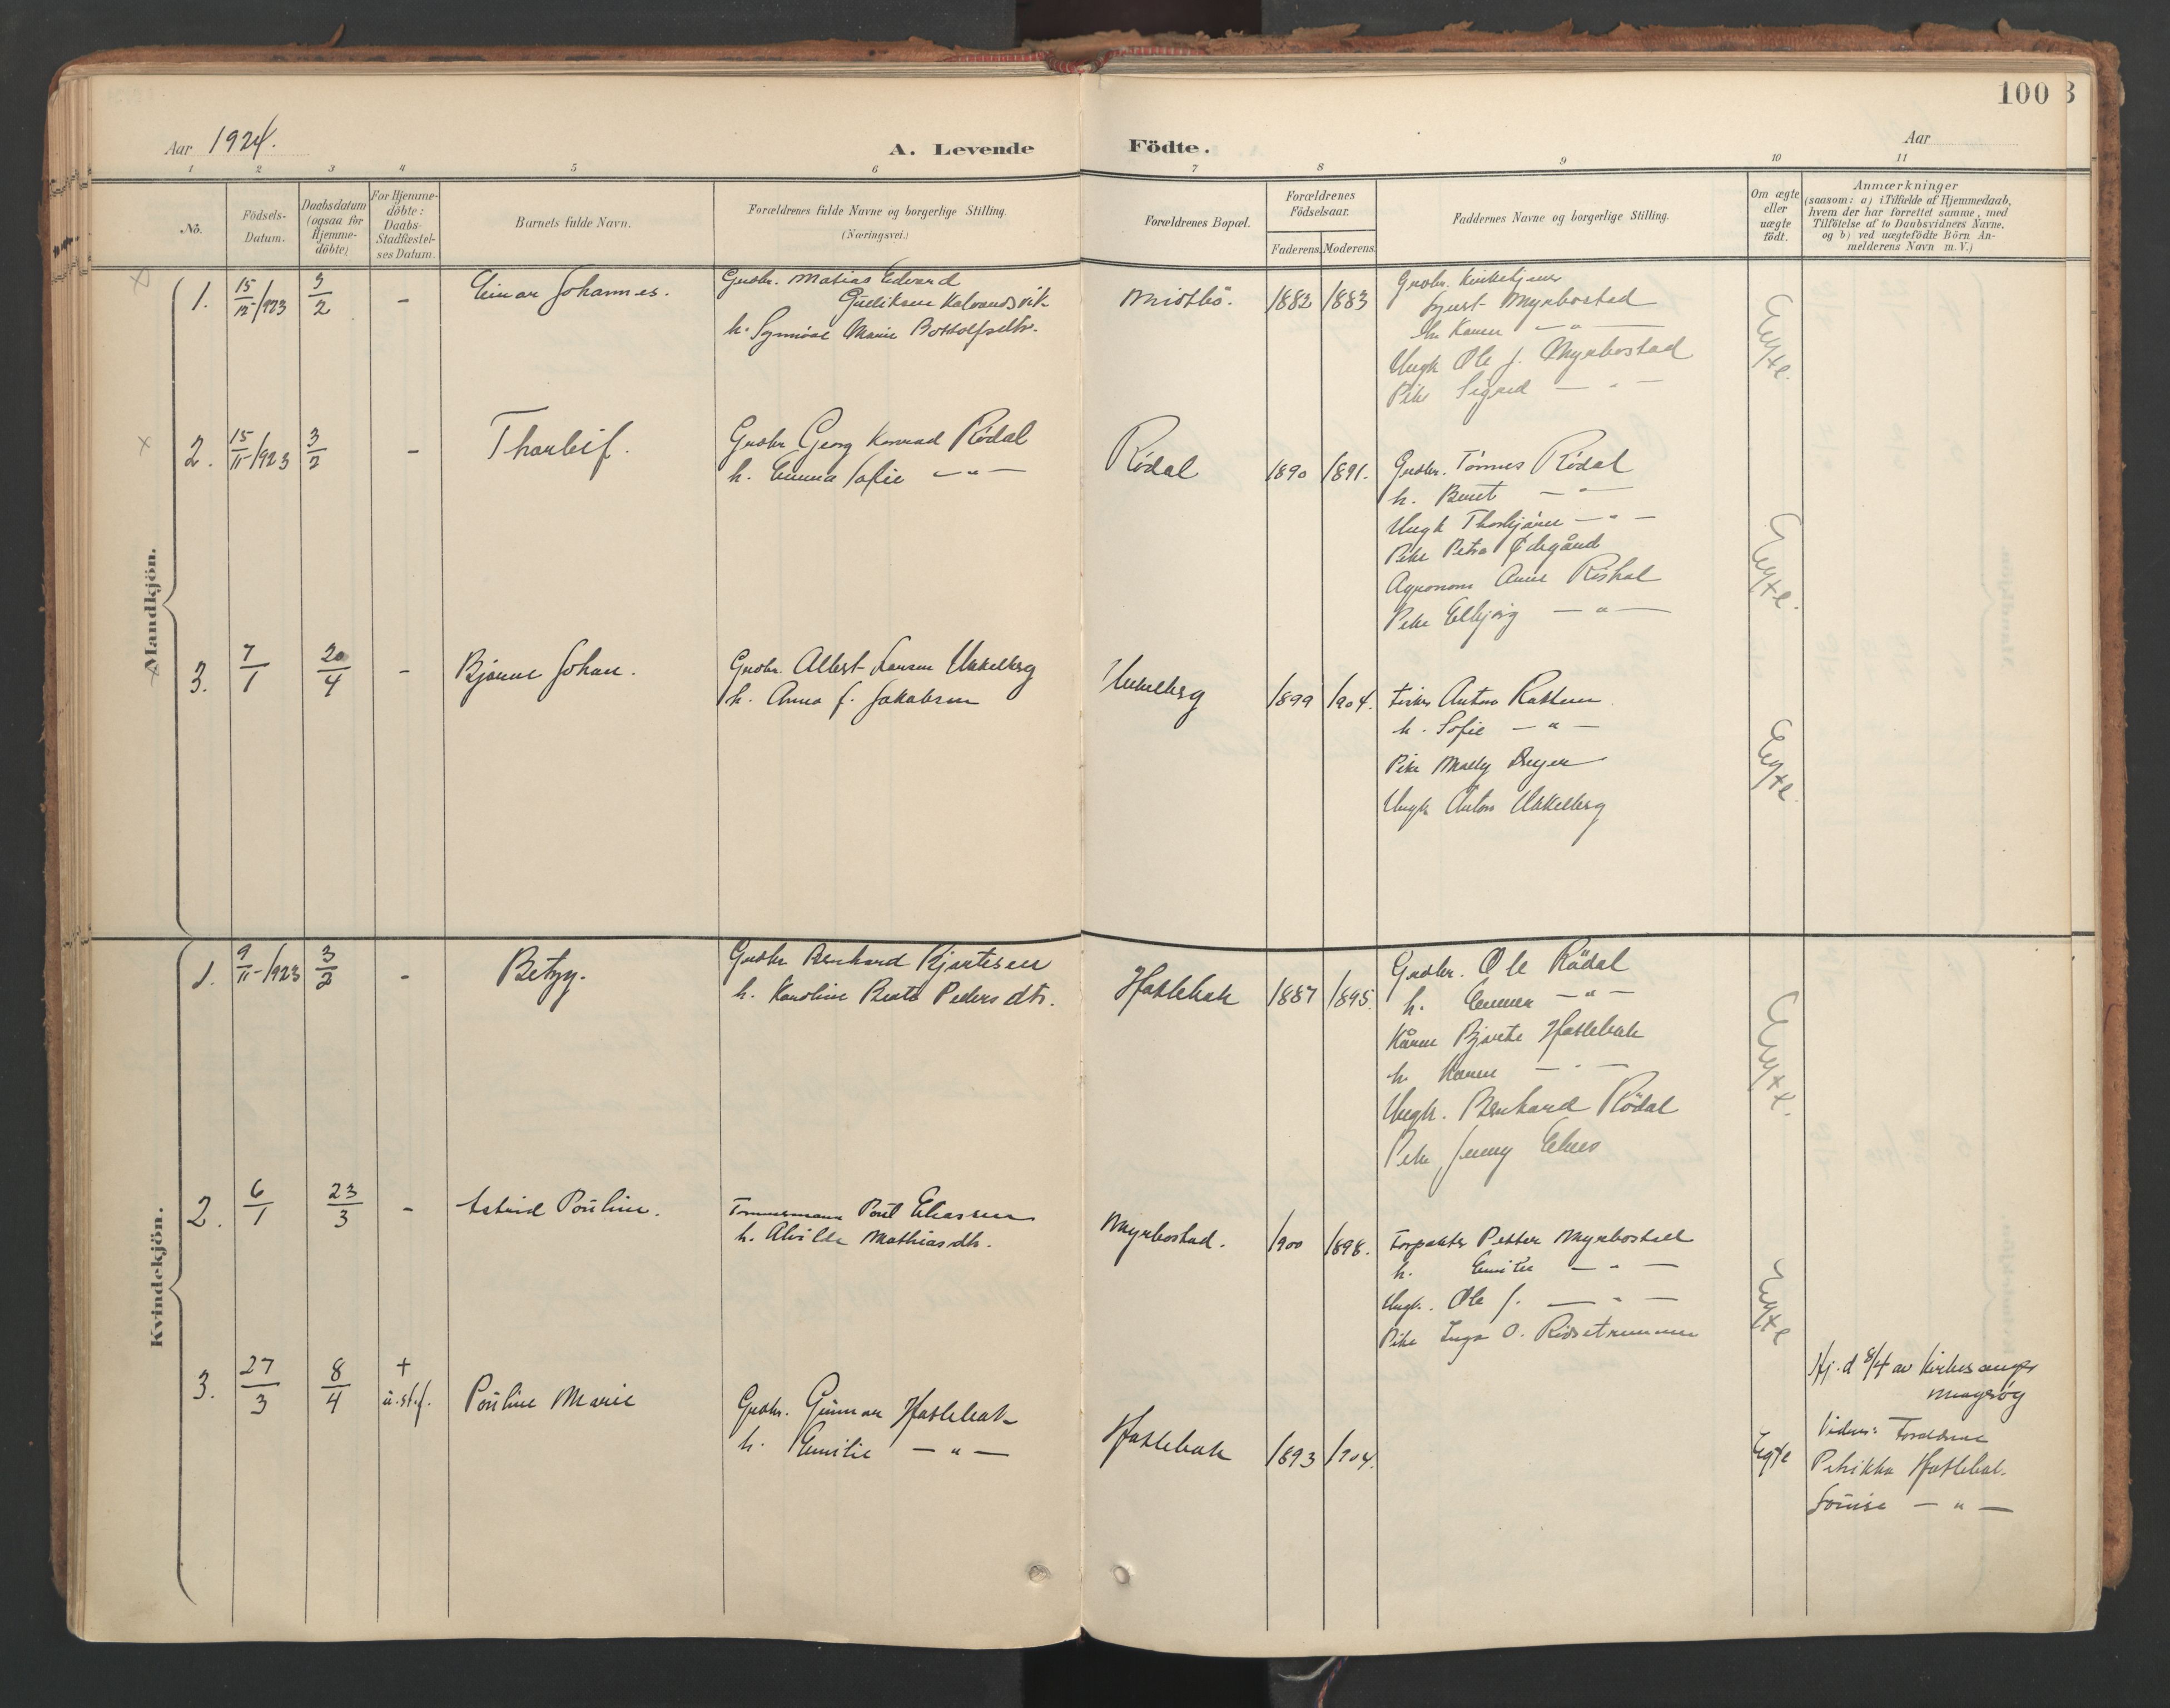 100
Aar 1924.
A. Levende Födte.
Aar
1 2 3 4 5 6 7 8 9 10 11
No.
Födsels-Datum.
Daabsdatum (ogsaa for Hjemmedöbte)
For Hjemmedöbte: Daabs-Stadfæstelses Datum.
Barnets fulde Navn.
Forældrenes fulde Navne og borgerlige Stilling. (Næringsvei.)
Forældrenes Bopæl.
Forældrenes Födselsaar.
Faderens. Moderens.
Faddernes Navne og borgerlige Stilling.
Om ægte eller uægte födt.
Anmærkninger
(saasom: a) i Tilfælde af Hjemmedaab,
hvem der har forrettet samme, med
Tilföielse af to Daabsvidners Navne,
og b) ved uægtefödte Börn Anmelderens Navn m. V.)
Mandkjön.
1. 15/12-1923 3/2 - Einar Johannes.
Gudbr. Matias Edvard
Gudiksen Kalvandsvik
h. Synnöve Marie Bottolfsdtr.
Midtbö. 1882 1883
Gudbr. Kirketjener
Sjurt Myrbostad
h. Karen - " -
Ungk Ole J. Myrbostad
Pike Sigrid - " -
Egte.
2. 15/11-1923 3/2 - Thorleif.
Gudbr Georg Konrad Rödal
h. Emma Sofie - " -
Rödal 1890 1891.
Gudbr. Tönnes Rödal
h. Beret - " -
Ungk Thorbjörn - " -
Pike Petra Ödegård
Agronom Arne
Pike Eldbjörg - " -
Egte.
3. 7/1 20/4 - Bjarne Johan.
Gudbr. Albert Larsen Ukkelberg
h. Anna J. Jakobsen
Ukkelberg 1899 1904.
Fisker Anton
h. Sofie - " -
Pike Mally
Ungk Anton Ukkelberg
Egte.
Kvindekjön.
1. 9/11-1923 3/2 - Betzy.
Gudbr Bernhard Bjartesen
h. Karoline Beate Pedersdtr.
Haslebak 1887 1895.
Gudbr. Ole Rödal
h. Emma - " -
Kårm Bjarte Haslebak
h. Karen - " -
Ungk. Bernhard Rödal
Pike Jenny Elnes
Egte.
2. 6/1 23/3 - Astrid Pouline.
Tömmermann Poul Eliassen
h. Alvilde Mathiasdtr.
Myrbostad. 1900 1898.
Forpakter Petter Myrbostad
h. Emilie - " -
Ungk. Ole J. - " -
Pike Inga O.
Egte
3. 27/3 8/4 + u.st.f. Pouline Marie
Gudbr. Gunnar Haslebak
h. Emilie - " -
Haslebak 1893 1904.
Egte
Hj. d 8/4 av Kirkesanger
Vidner: Foreldrene
Petrikka Haslebak.
Louise - " -